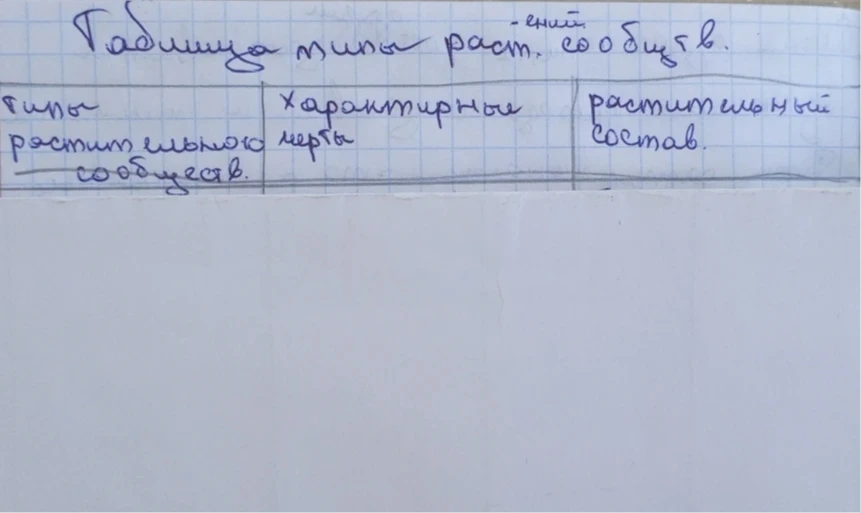 Таблица типы раст.-ений сообщств.
типы
растительного
сообществ.
Характирные
черты
растительный
состав.